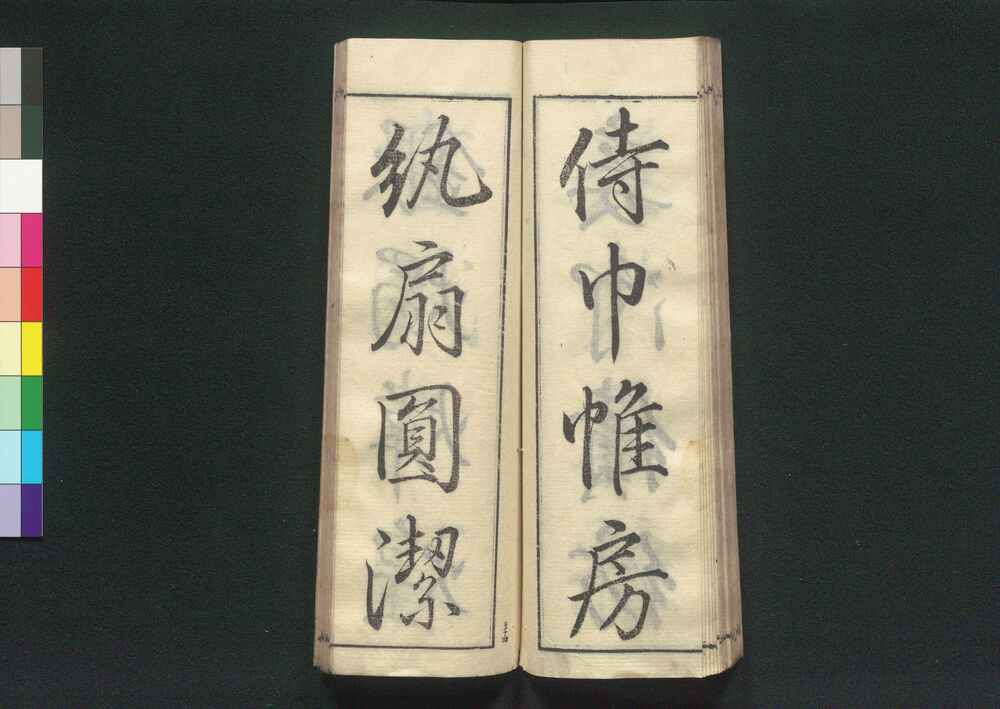 侍巾帷房
紈扇圓潔